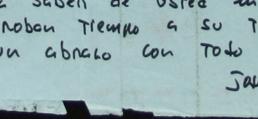 saben de usted
roban Tiempo a su T
un abrazo con Todo
Ja